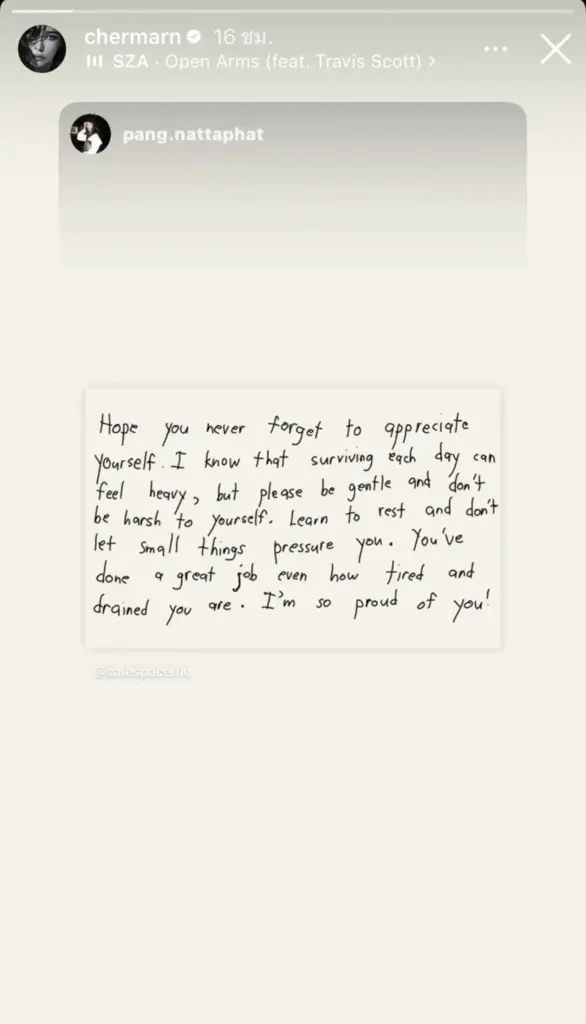 chermarn 16 ชม.
SZA · Open Arms (feat. Travis Scott) >
pang.nattaphat
Hope you never forget to appreciate
yourself. I know that surviving each day can
feel heavy, but please be gentle and don't
be harsh to yourself. Learn to rest and don't
let small things pressure you. You've
done a great job even how tired and
drained you are. I'm so proud of you!